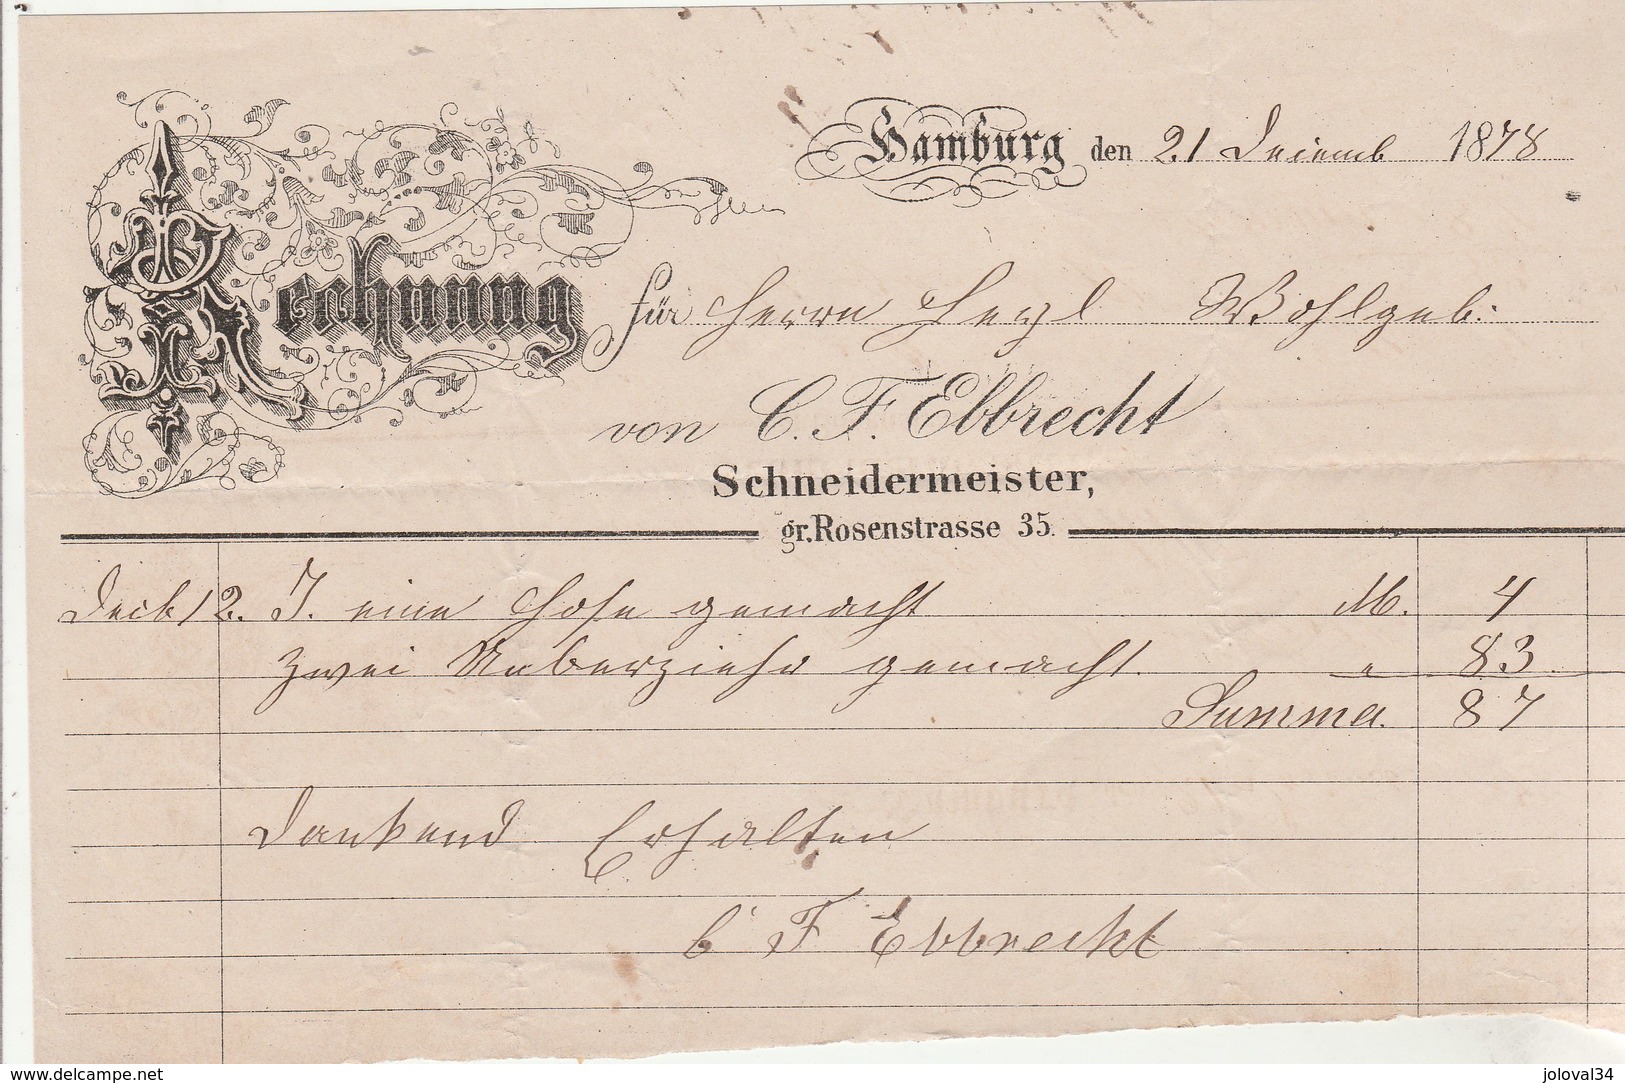 Hamburg den 21 Decemb 1878
Rechnung für Herrn Heyl Wohlgeb:
von C. F. Ebbrecht
Schneidermeister,
gr. Rosenstrasse 35.
Decb 12. I. eine Hose gemacht M. 4
zwei Ueberzieher gemacht. " 83
Summa. 87
Dankend Erhalten
C F Ebbrecht
www.delcampe.net
joloval34